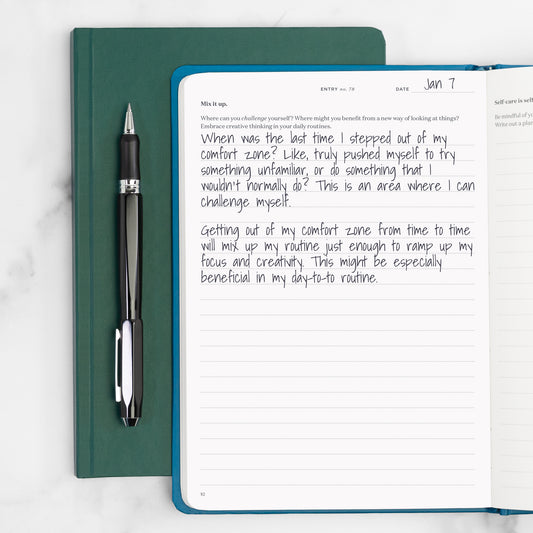 ENTRY no. 78 DATE Jan 7
Mix it up.
Where can you challenge yourself? Where might you benefit from a new way of looking at things?
Embrace creative thinking in your daily routines.
When was the last time I stepped out of my
comfort zone? Like, truly pushed myself to try
something unfamiliar, or do something that I
wouldn't normally do? This is an area where I can
challenge myself.
Getting out of my comfort zone from time to time
will mix up my routine just enough to ramp up my
focus and creativity. This might be especially
beneficial in my day-to-to routine.
92
Self-care is self
Be mindful of yo
Write out a plan